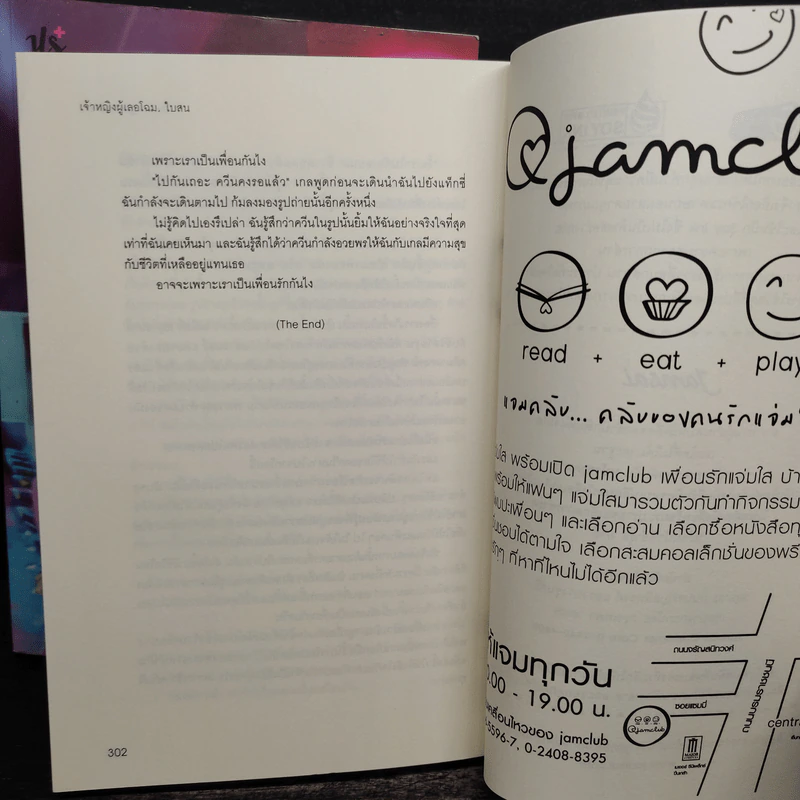 เจ้าหญิงผู้เลอโฉม. ใบสน
เพราะเราเป็นเพื่อนกันไง
"ไปกันเถอะ ควีนคงรอแล้ว" เกลพูดก่อนจะเดินนำฉันไปยังแท็กซี่
ฉันกำลังจะเดินตามไป ก้มลงมองรูปถ่ายนั้นอีกครั้งหนึ่ง
ไม่รู้คิดไปเองรึเปล่า ฉันรู้สึกว่าควีนในรูปนั้นยิ้มให้ฉันอย่างจริงใจที่สุด
เท่าที่ฉันเคยเห็นมา และฉันรู้สึกได้ว่าควีนกำลังอวยพรให้ฉันกับเกลมีความสุข
กับชีวิตที่เหลืออยู่แทนเธอ
อาจจะเพราะเราเป็นเพื่อนรักกันไง
(The End)
302
@jamclu
read + eat + play
แจมคลับ... คลับของคนรักแจ่ม
พร้อมเปิด jamclub เพื่อนรักแจ่มใส
แฟนๆ แจ่มใสมารวมตัวกันทำกิจกรรม
เพื่อนๆ และเลือกอ่าน เลือกซื้อหนังสือ
ได้ตามใจ เลือกสะสมคอลเล็กชั่นของพรี
ที่หาที่ไหนไม่ได้อีกแล้ว
แจมทุกวัน
.00 - 19.00 น.
ของ jamclub
5596-7, 0-2408-8395
ถนนจรัญสนิทวงศ์
ซอยแซมมี่
centra
@jamclub
เมเจอร์ ซีนีเพล็กซ์
ปิ่นเกล้า